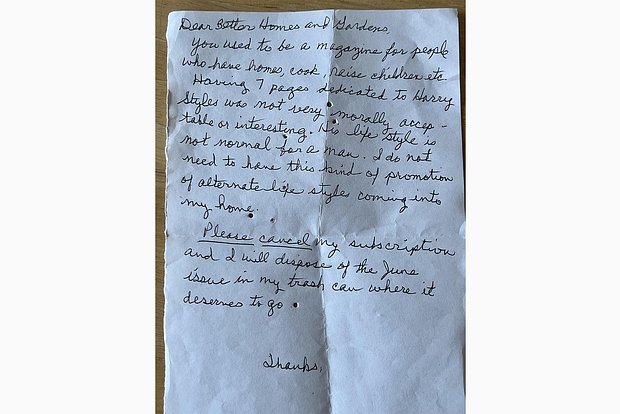 Dear Better Homes and Gardens,
You used to be a magazine for people
who have homes, cook, raise children etc
Having 7 pages dedicated to Harry
Styles was not very morally accep-
table or interesting. His life style is
not normal for a man. I do not
need to have this kind of promotion
of alternate life style coming into
my home.
Please cancel my subscription
and I will dispose of the June
issue in my trash can where it
deserves to go.
Thanks,